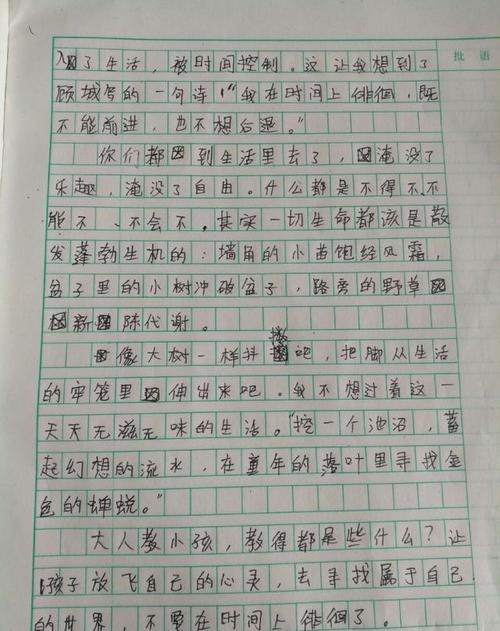 批语
入了生活，被时间控制。这让我想到了
顾城写的一句诗！"我在时间上徘徊，既
不能前进，也不想后退。"
你们都到生活里去了，淹没了
乐趣，淹没了自由。什么都是不得不、不
能不、不会不。其实一切生命都该是散
发蓬勃生机的：墙角的小苗饱经风霜，
盆子里的小树冲破盆子，路旁的野草
新陈代谢。
像大树一样抖擞吧，把脚从生活
的牢笼里伸出来吧。我不想过着这一
天天无滋无味的生活。"挖一个池沼，蓄
起幻想的流水，在童年的落叶里寻找金
色的蝉蜕。"
大人教小孩，教得都是些什么？让
孩子放飞自己的心灵，去寻找属于自己
的世界，不要在时间上徘徊了。